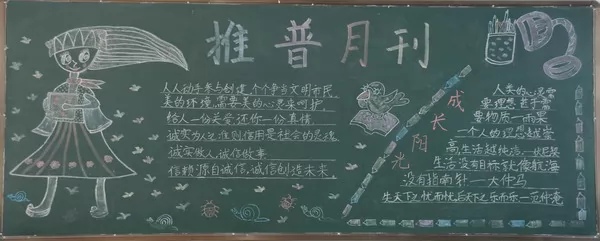 推普月刊
人人动手参与创建,个个争当文明市民
美的环境,需要美的心灵来呵护
给人一份关爱,还你一份真情
诚实为人之道,信用是社会的灵魂
诚实做人,诚信做事
信赖源自诚信,诚信创造未来
成长阳光
人类的心灵需
要理想甚于需
要物质—雨果
一个人的理想越崇
高生活越纯洁
生活没有目标就像航海
没有指南针—大仲马
先天下之忧而忧,后天下之乐而乐—范仲淹